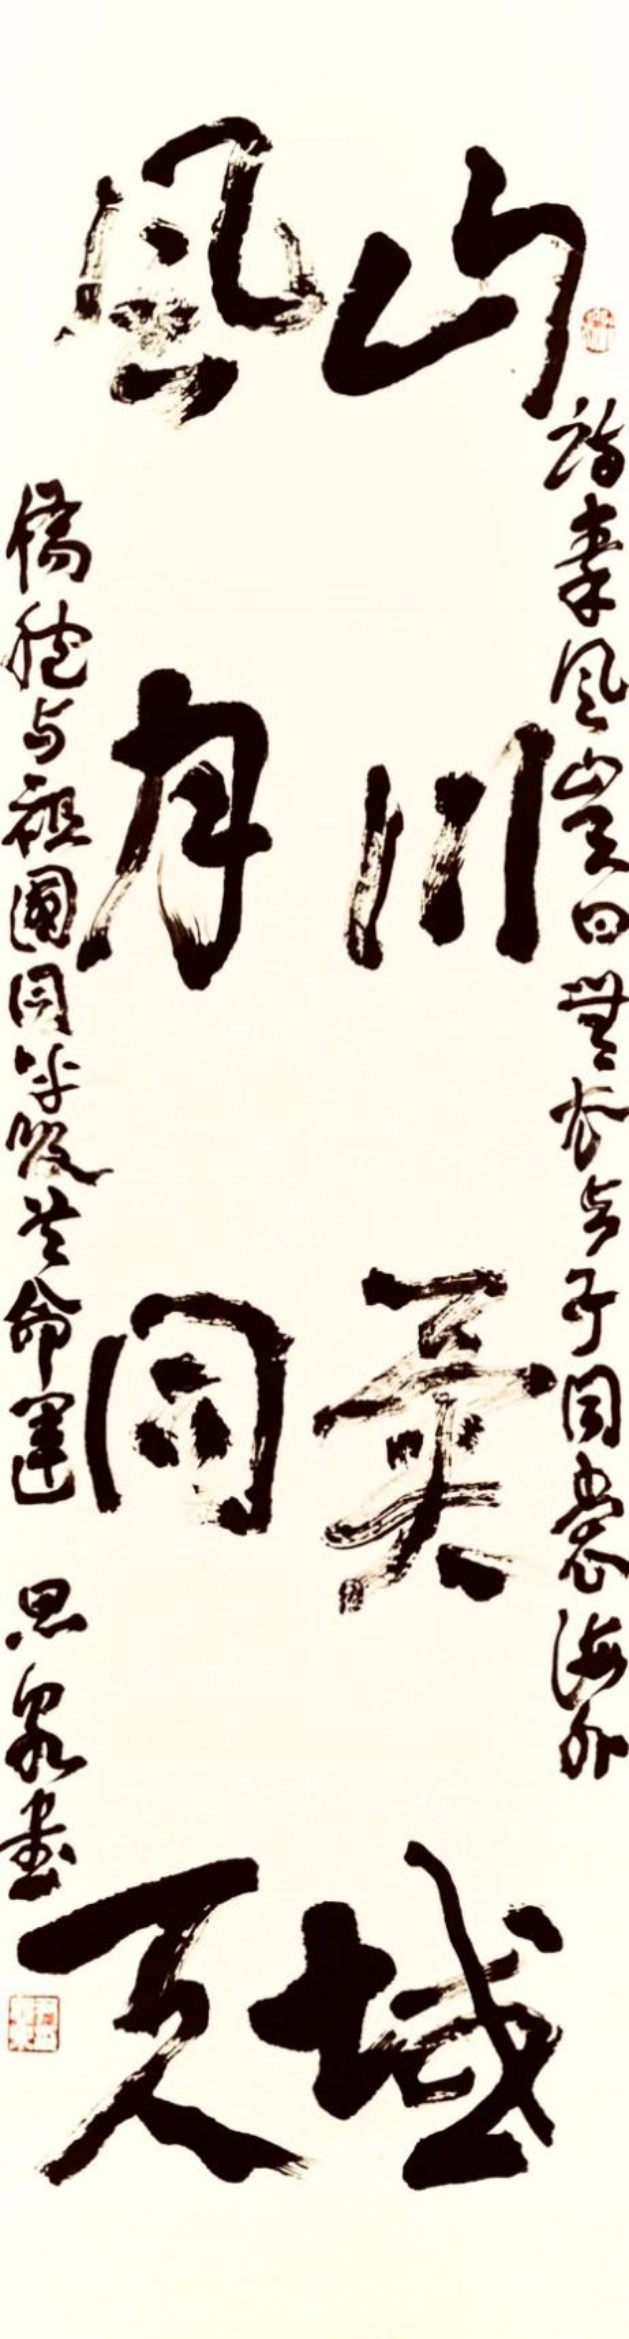 詩秦風豈曰無衣与子同裳海外
山川異域
風月同天
僑胞与祖國同呼吸共命運 思泉書